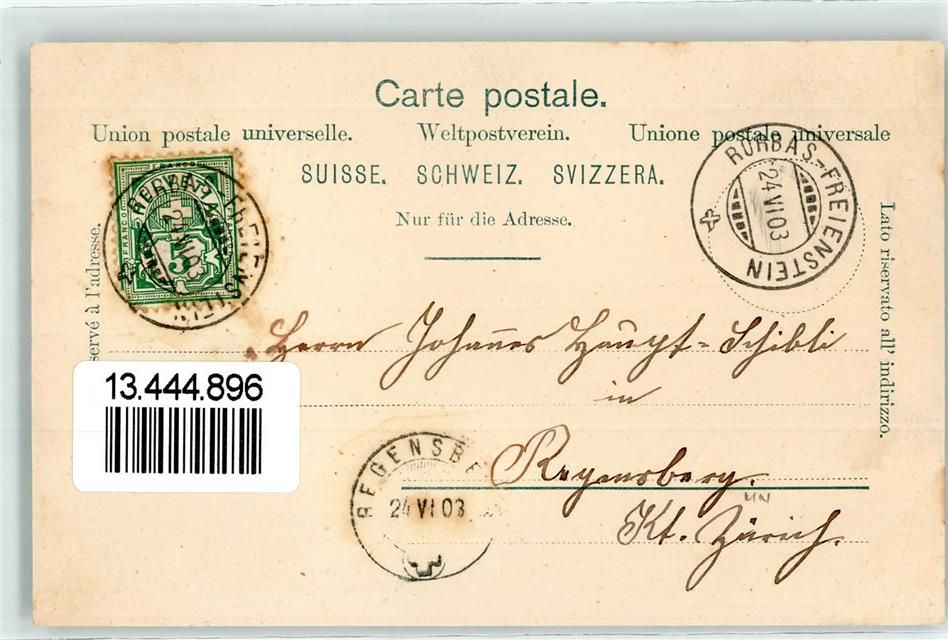 Carte postale.
Union postale universelle. Weltpostverein. Unione postale universale
SUISSE. SCHWEIZ. SVIZZERA.
Nur für die Adresse.
RORBAS.-FREIENSTEIN
24 VI 03
FRANCO
FRANCO
5
RORBAS.-FREIENSTEIN
24 VI 03
servé à l'adresse.
Lato riservato all' indirizzo.
Herrn Johannes Haupt-Schibli
in
Regensberg.
Kt. Zürich.
13.444.896
REGENSBE
24 VI 03